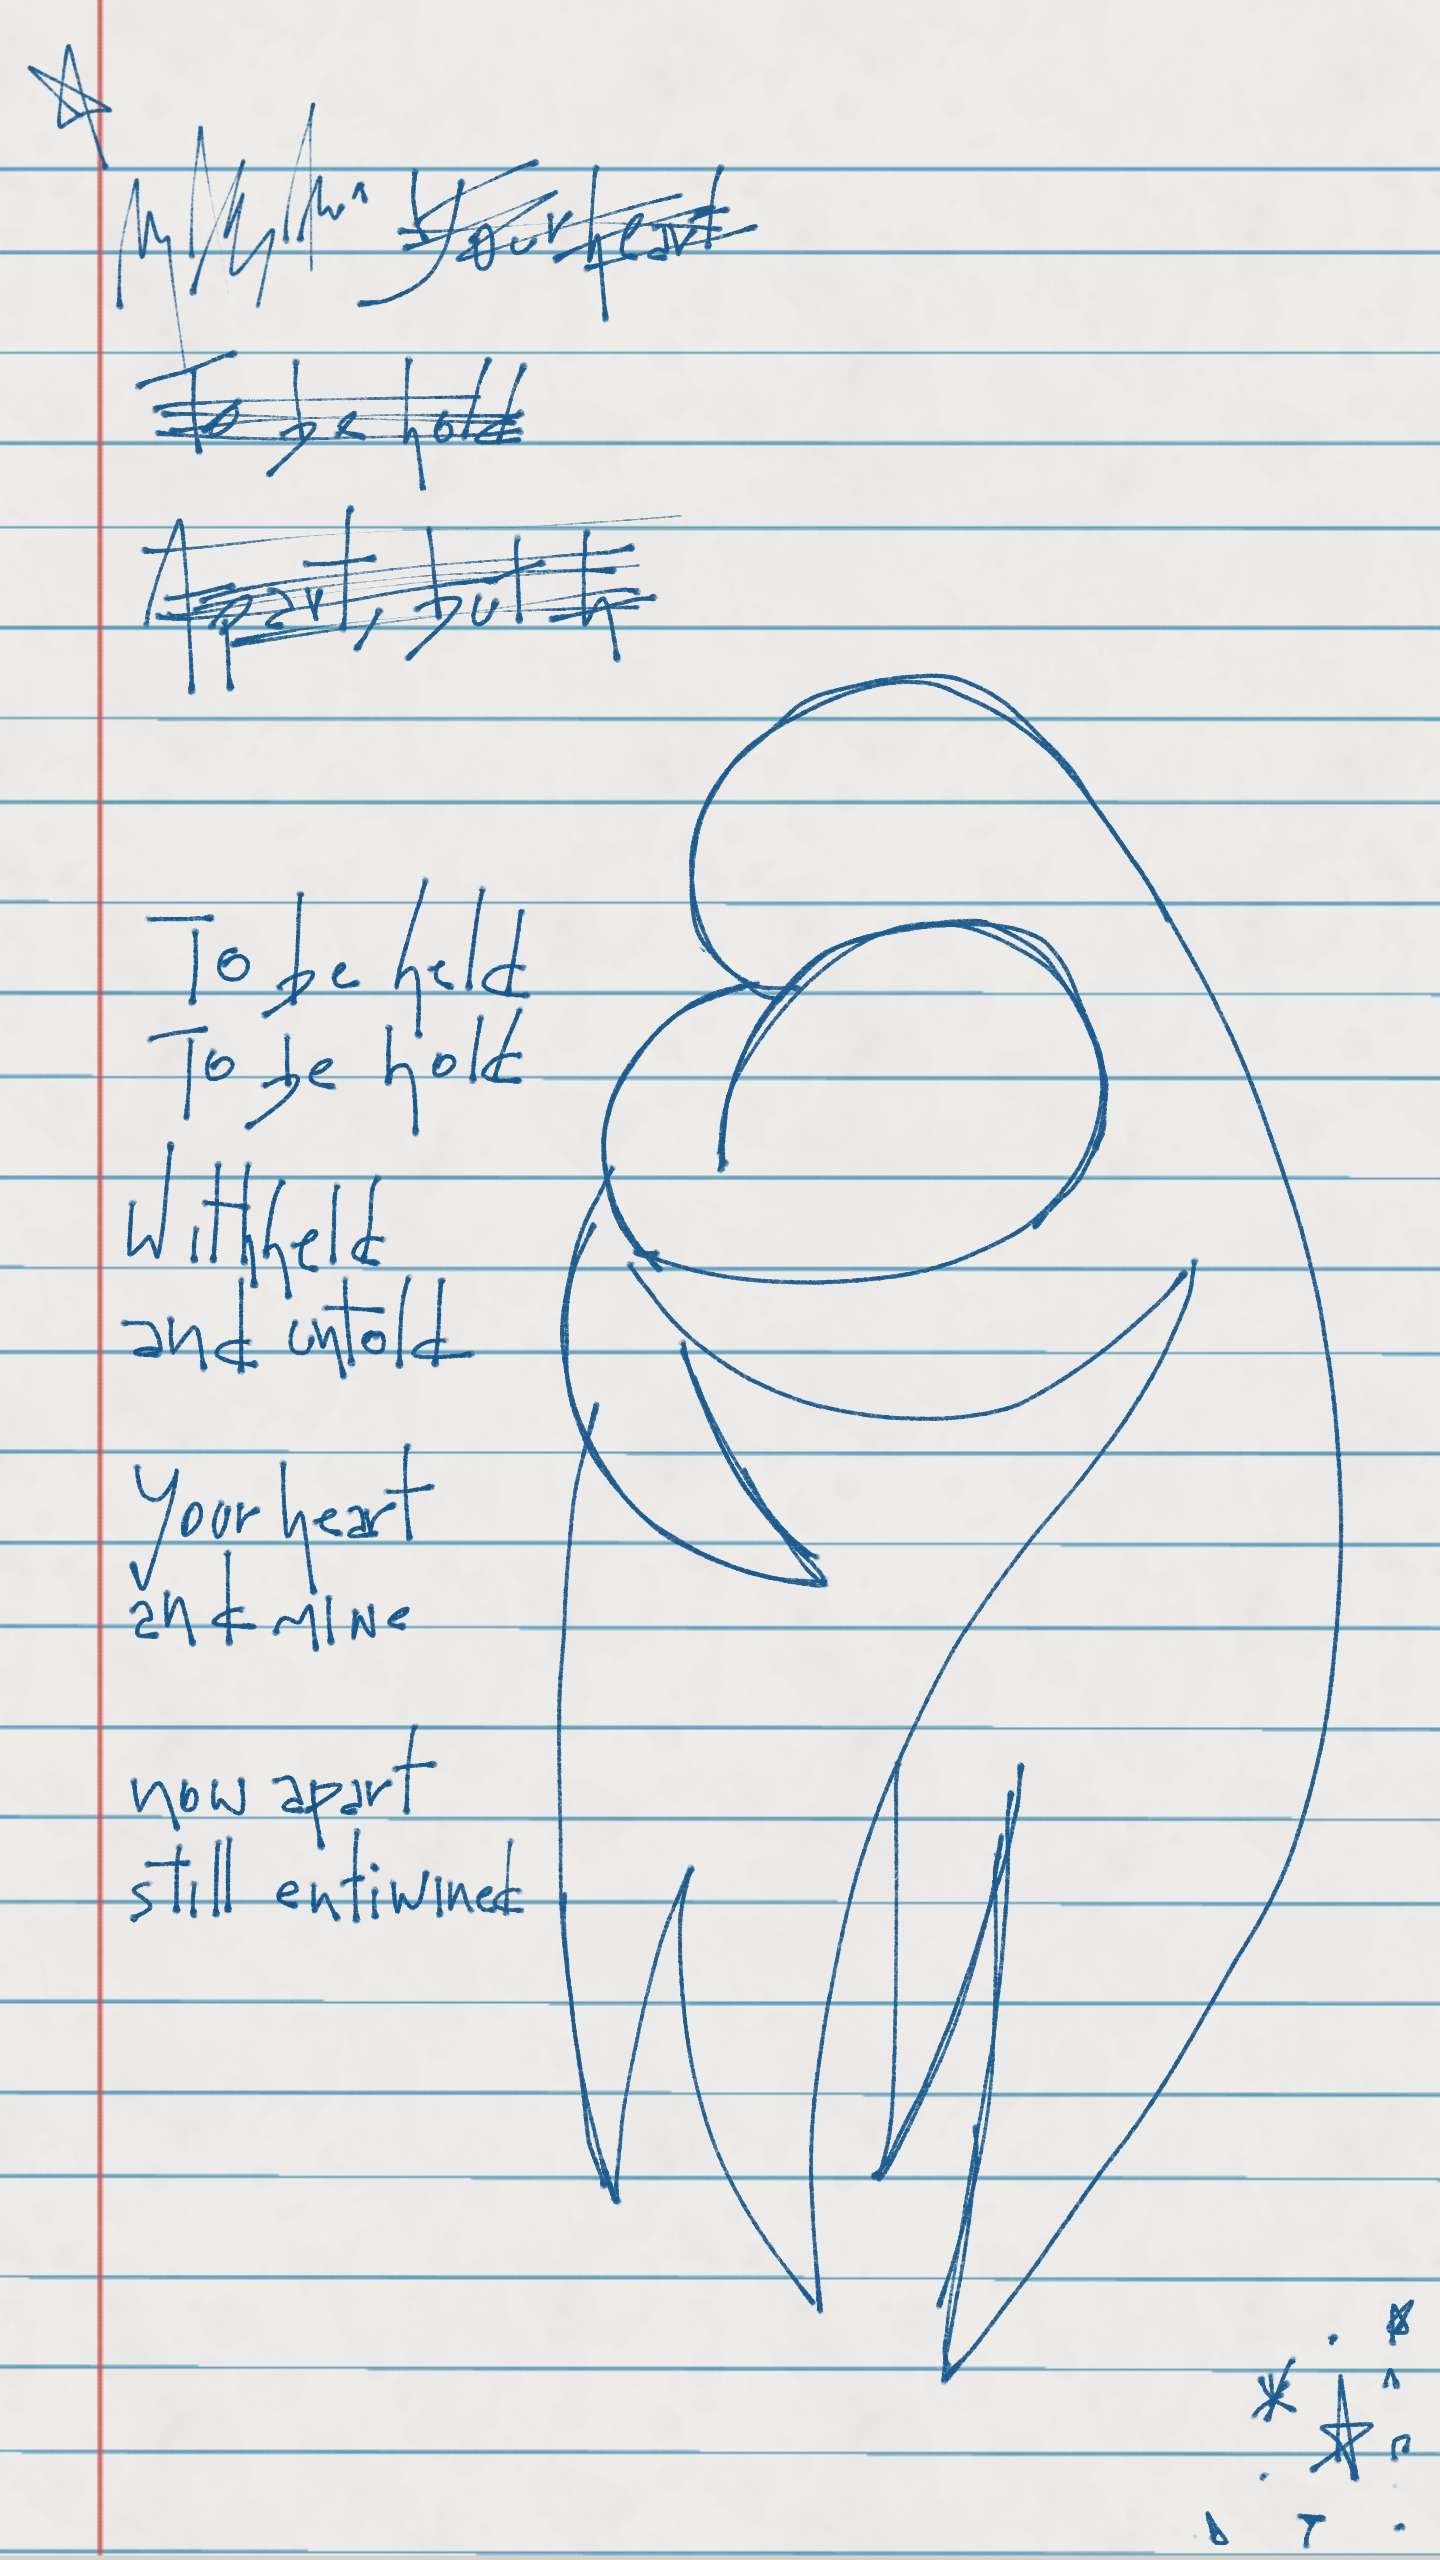 Your heart
To be hold
Apart, but h
To be held
To be hold
Withheld
and untold
Your heart
and mine
now apart
still entiwined